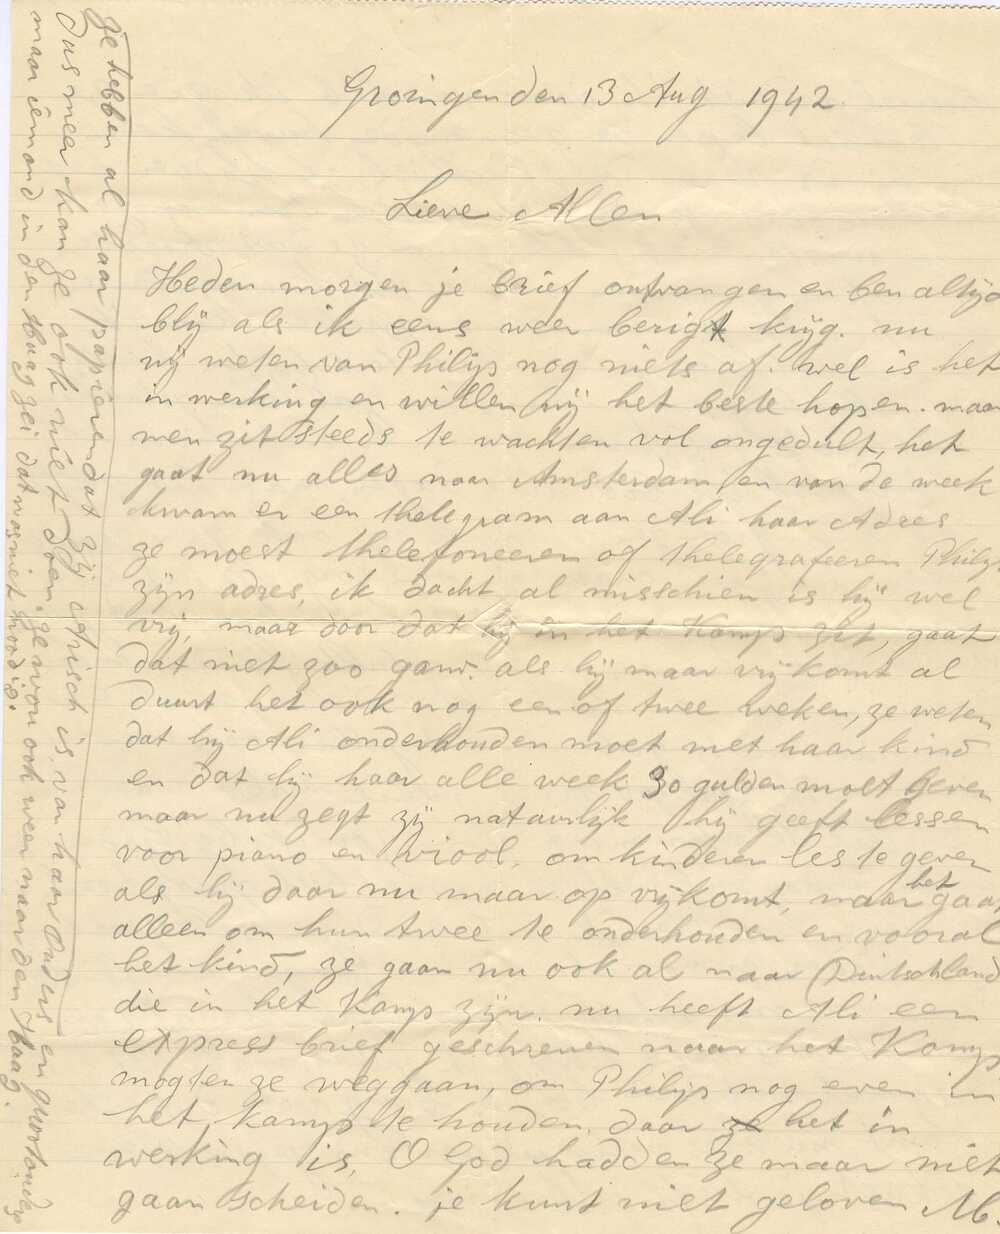 Groningen den 13 Aug 1942.
Lieve Allen
Heden morgen je brief ontvangen en ben altijd
blij als ik eens weer berigt krijg. nu
wij weten van Philip nog niets af. wel is het
in werking en willen wij het beste hopen. maar
men zit steeds te wachten vol ongedult, het
gaat nu alles naar Amsterdam, en van de week
kwam er een thelegram aan Ali haar Adres
ze moest thelefoneeren of thelegrafeeren Philip
zijn adres, ik dacht al misschien is hij wel
vrij, maar door dat hij in het Kamp zit, gaat
dat niet zoo gauw. als hij maar vrijkomt al
duurt het ook nog een of twee weken, ze weten
dat hij Ali onderhouden moet met haar kind
en dat hij haar alle week 30 gulden moet geven
maar nu zegt zij natuurlijk hij geeft lessen
voor piano en Viool. om kinderen les te geven
als hij daar nu maar op vrijkomt, maar het gaat
alleen om hun twee te onderhouden en vooral
het kind, ze gaan nu ook al naar Duitschland
die in het Kamp zijn. nu heeft Ali een
express brief geschreven naar het Kamp
mogten ze weggaan, om Philip nog even in
het kamp te houden. daar ze het in
werking is, O God hadden ze maar niet
gaan scheiden. je kunt niet geloven M.
ze hebben al haar papieren dat zij Arisch is, van haar Ouders en Grootouders
dus meer kan ze ook niet doen. ze wou ook weer naar den Haag.
maar iemand in den Haag zei dat was niet noodig.